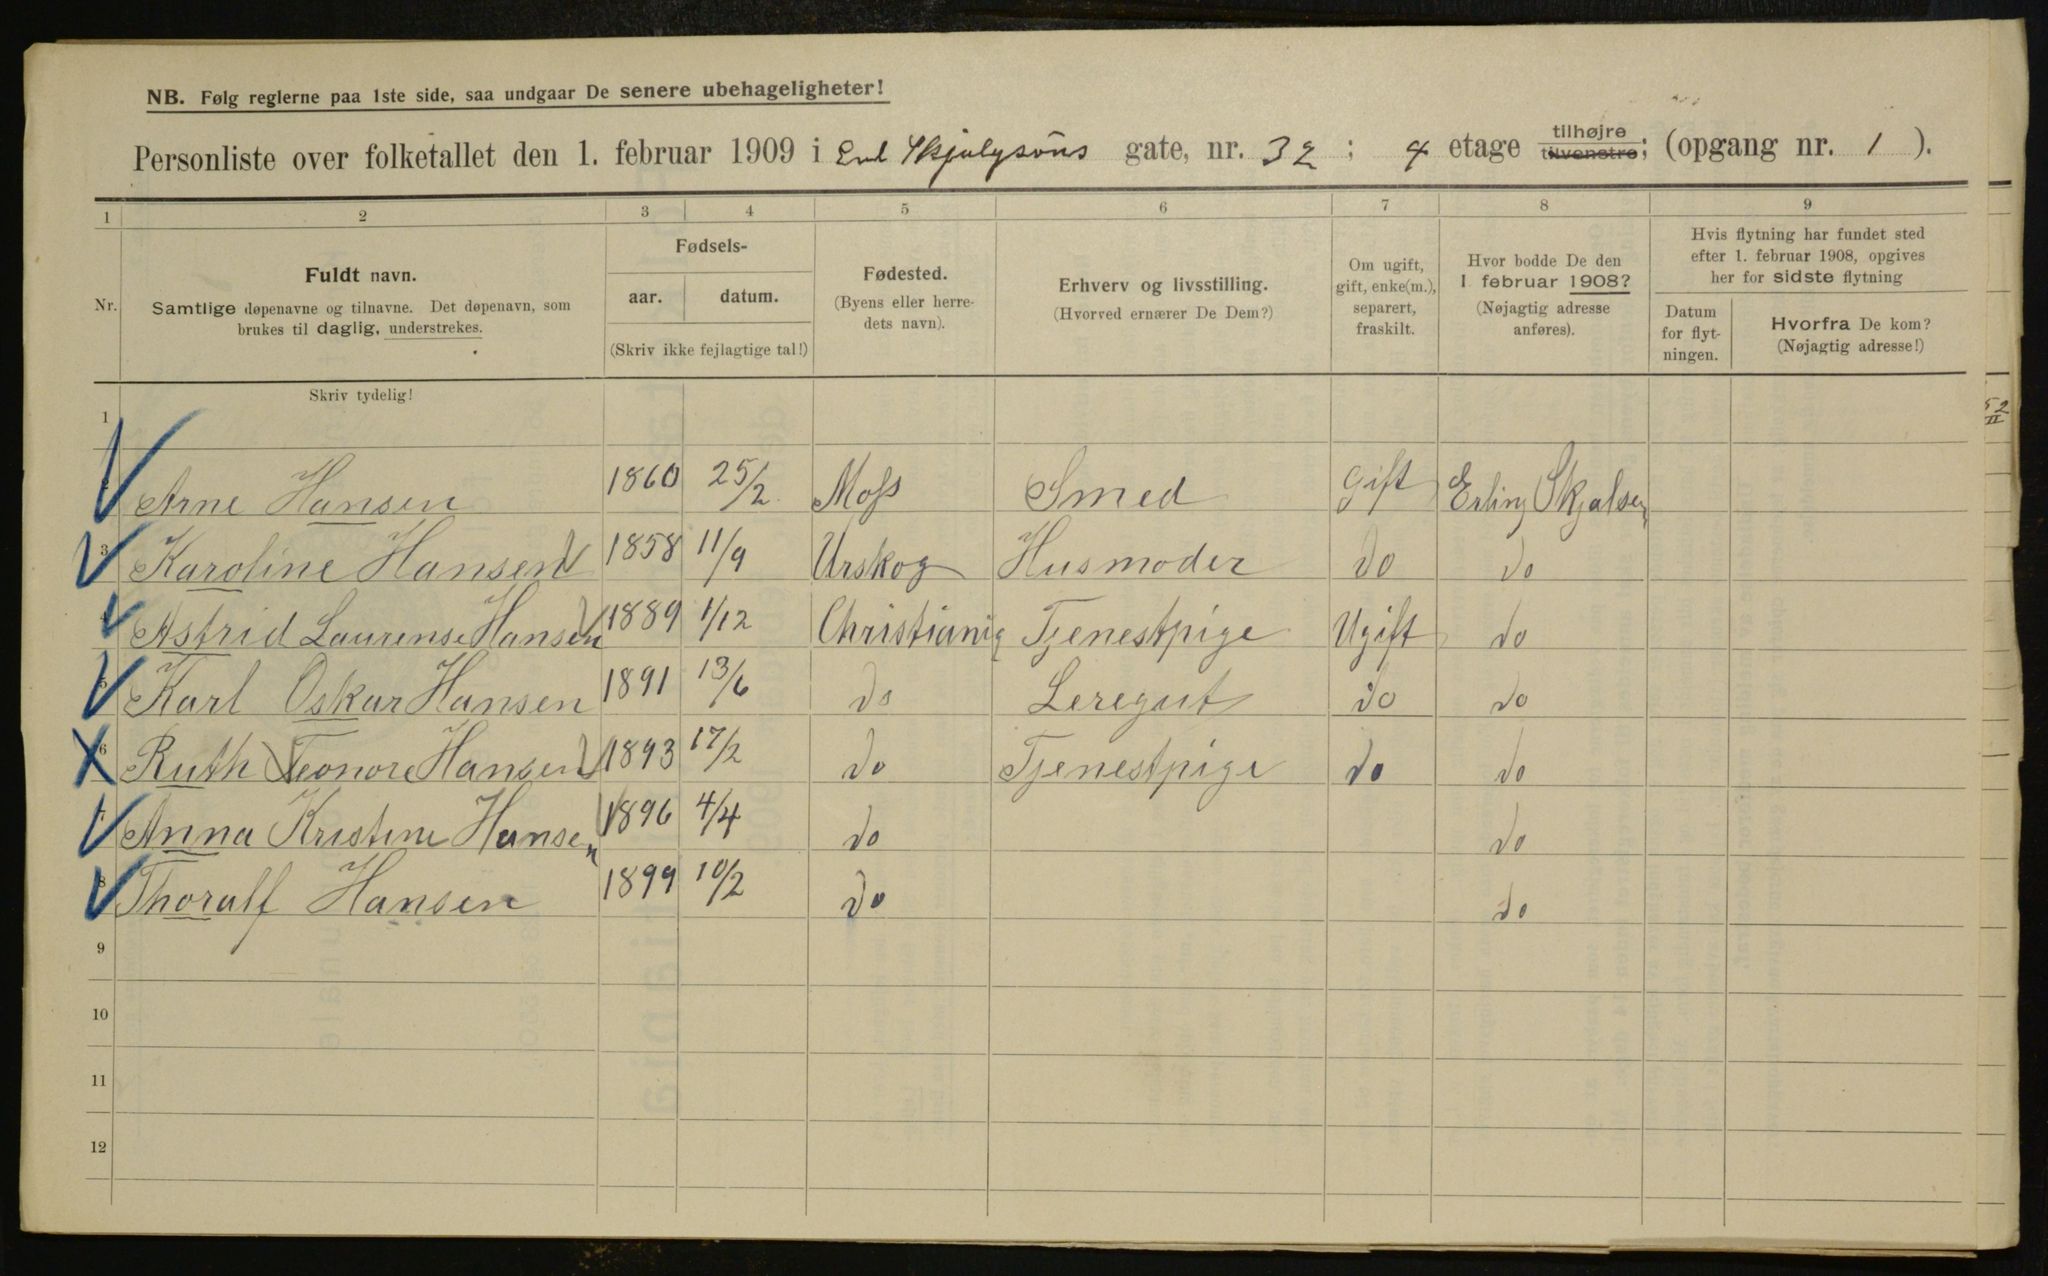 NB. Følg reglerne paa 1ste side, saa undgaar De senere ubehageligheter!
Personliste over folketallet den 1. februar 1909 i Erl Skjalgsöns gate, nr. 32; 4 etage tilhøjre tilvenstre; (opgang nr. 1).
1 2 3 4 5 6 7 8 9
Nr. Fuldt navn. Samtlige døpenavne og tilnavne. Det døpenavn, som brukes til daglig, understrekes.
Fødsels- aar. datum. (Skriv ikke fejlagtige tal!)
Fødested. (Byens eller herredets navn).
Erhverv og livsstilling. (Hvorved ernærer De Dem?)
Om ugift, gift, enke(m.), separert, fraskilt.
Hvor bodde De den 1. februar 1908? (Nøjagtig adresse anføres).
Hvis flytning har fundet sted efter 1. februar 1908, opgives her for sidste flytning
Datum for flytningen. Hvorfra De kom? (Nøjagtig adresse!)
Skriv tydelig!
1
2 Arne Hansen 1860 25/2 Moss Smed Gift Erling Skjalsen
3 Karoline Hansen 1858 11/9 Urskog Husmoder do do
4 Astrid Laurense Hansen 1889 1/12 Christiania Tjenestpige Ugift do
5 Karl Oskar Hansen 1891 13/6 do Leregut do do
6 Ruth Leonore Hansen 1893 17/2 do Tjenestpige do do
7 Anna Kristine Hansen 1896 4/4 do do
8 Thoralf Hansen 1899 10/2 do do
9
10
11
12